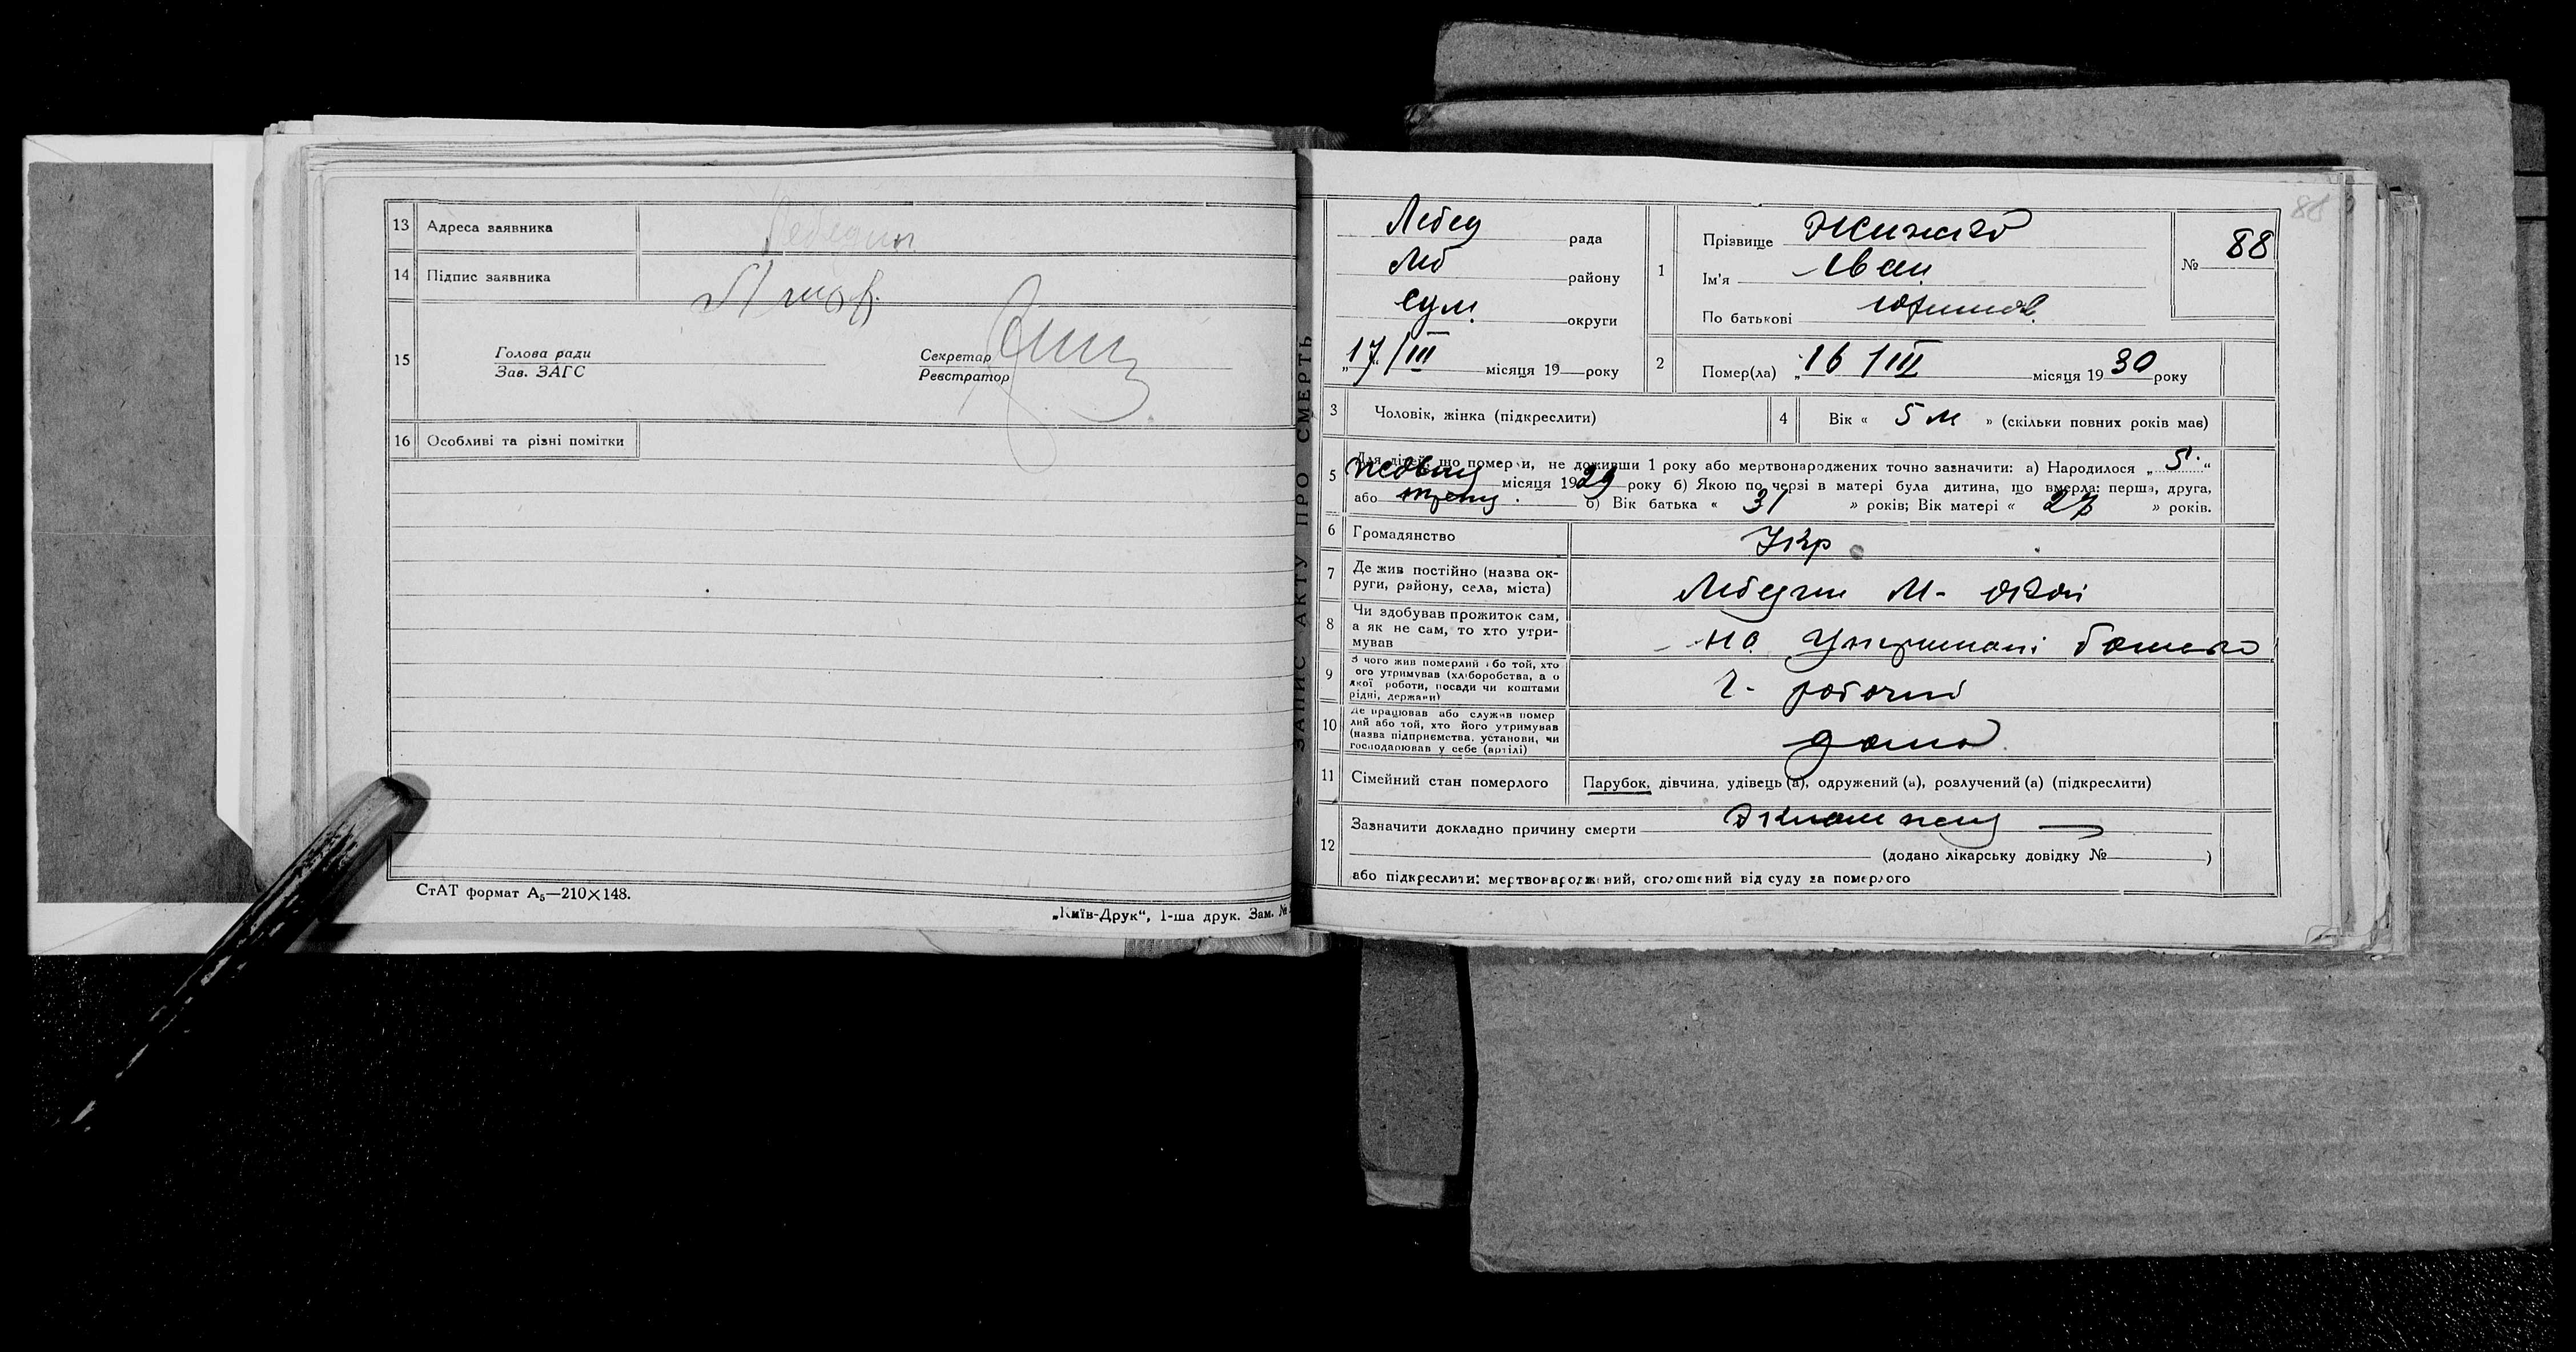 13 Адреса заявника Лебедин
14 Підпис заявника
15 Голова ради
Зав. ЗАГС
Секретар
Реєстратор
16 Особливі та різні помітки
СтАТ формат А₅—210×148.
„Київ-Друк“, 1-ша друк. Зам. №
ЗАПИС АКТУ ПРО СМЕРТЬ
88
Лебед рада
Леб району
Сум. округи
„17/III місяця 19 року
1 Прізвище
Ім'я Іван
По батькові
№ 88
2 Помер(ла) „16/III місяця 1930 року
3 Чоловік, жінка (підкреслити)
4 Вік « 5 м » (скільки повних років має)
5 Для дітей, що померли, не доживши 1 року або мертвонароджених точно зазначити: а) Народилося „ 5 “
жовтня місяця 1929 року б) Якою по черзі в матері була дитина, що вмерла: перша, друга,
або третя. б) Вік батька « 31 » років; Вік матері « 27 » років.
6 Громадянство Укр
7 Де жив постійно (назва ок-
руги, району, села, міста) Лебедин М-
8 Чи здобував прожиток сам,
а як не сам, то хто утри-
мував на утриманні батька
9 З чого жив померлий або той, хто
його утримував (хліборобства, а о
якої роботи, посади чи коштами
рідні, держави) Ч- робочий
10 Де працював або служив помер
лий або той, хто його утримував
(назва підприємства, установи, чи
господарював у себе (артілі) дома
11 Сімейний стан померлого Парубок, дівчина, удівець (а), одружений (а), розлучений (а) (підкреслити)
12 Зазначити докладно причину смерти
(додано лікарську довідку № )
або підкреслити: мертвонароджений, оголошений від суду за померлого